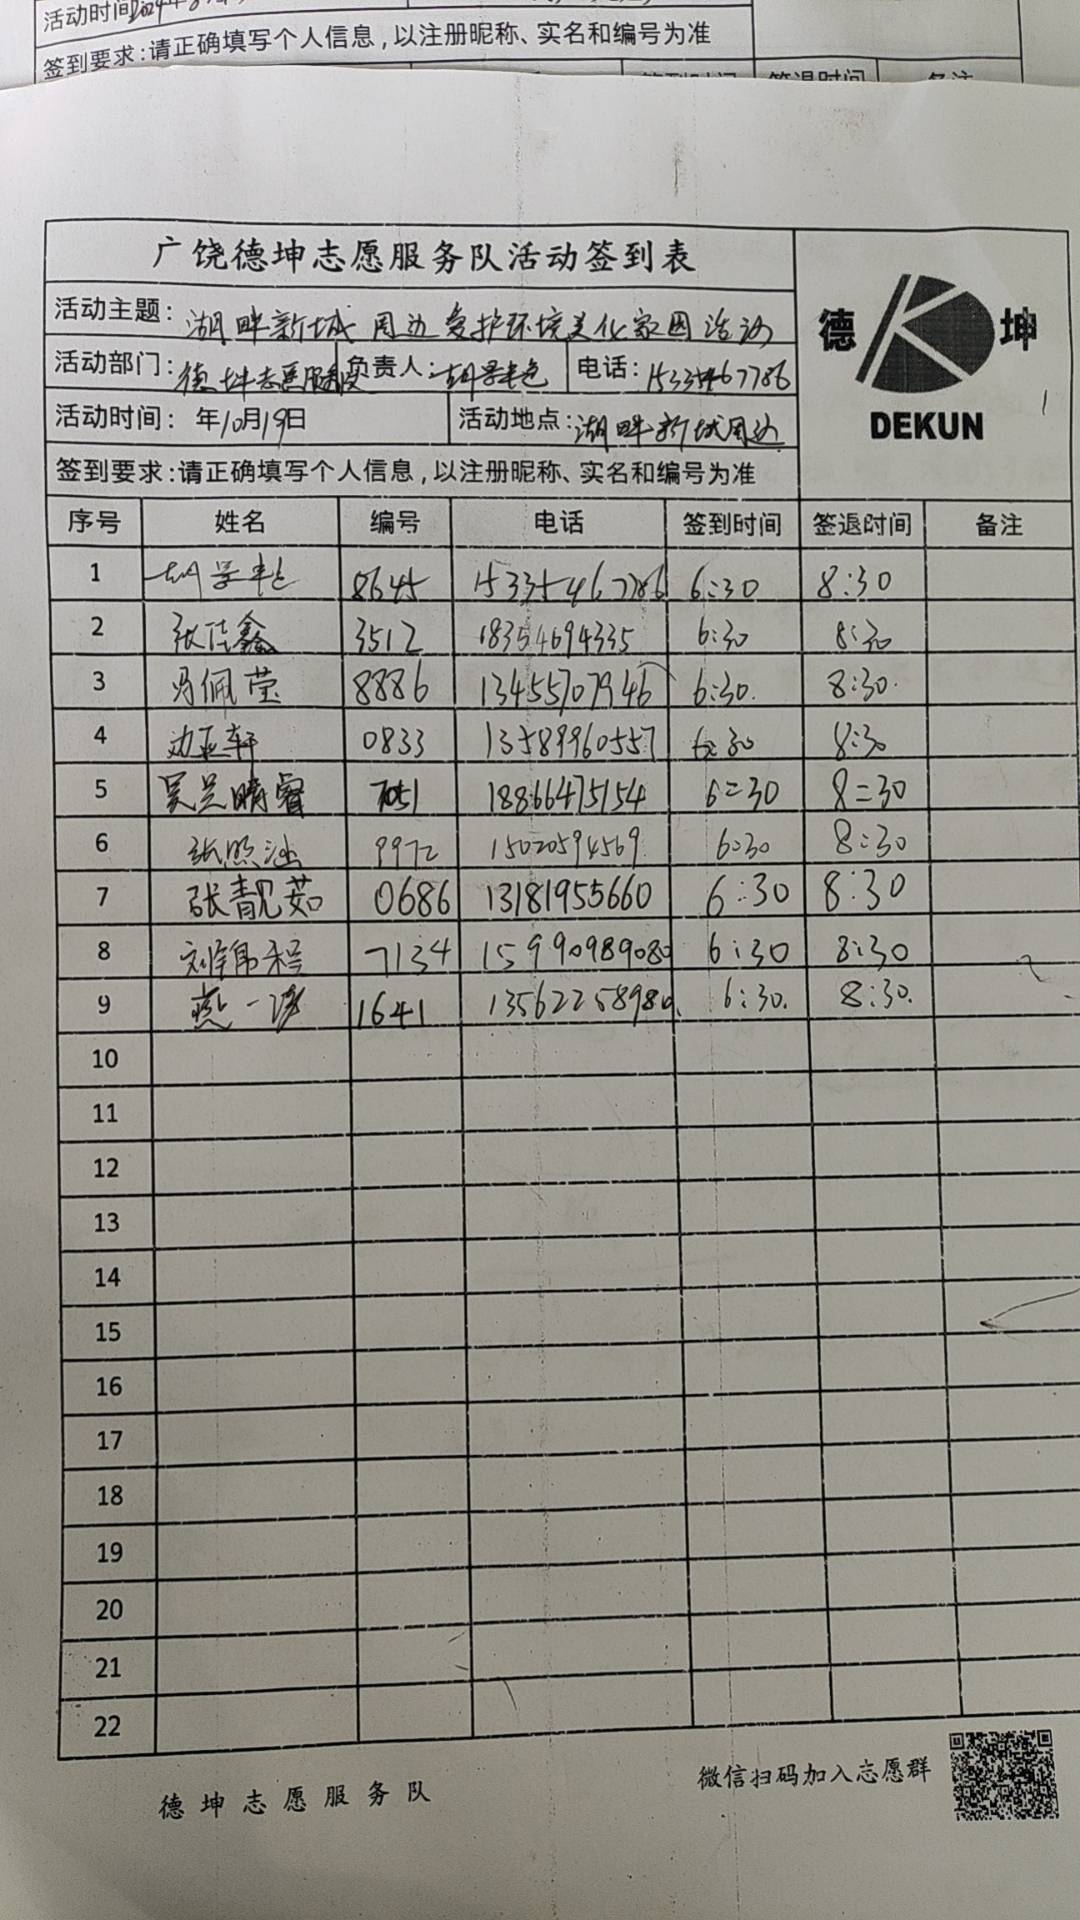 活动时间
签到要求:请正确填写个人信息,以注册昵称、实名和编号为准
签到时间 签退时间 备注
广饶德坤志愿服务队活动签到表
活动主题: 湖畔新城 周边爱护环境美化家园活动
德 坤
DEKUN
活动部门: 德坤志愿服务队 负责人: 电话: 15335467786
活动时间: 年10月19日 活动地点: 湖畔新城周边
签到要求:请正确填写个人信息,以注册昵称、实名和编号为准
序号 姓名 编号 电话 签到时间 签退时间 备注
1 8645 15335467786 6:30 8:30
2 张佳鑫 3512 18354694335 6:30 8:30
3 冯佩莹 8886 13455707946 6:30. 8:30.
4 0833 13589960557 6:30 8:30
5 吴昊晴睿 7051 18866475154 6=30 8=30
6 张照涵 9972 15020594569 6:30 8:30
7 张靓茹 0686 13181955660 6:30 8:30
8 7134 15990989080 6:30 8:30
9 燕一诺 1641 13562258980. 6:30. 8:30.
10
11
12
13
14
15
16
17
18
19
20
21
22
德坤志愿服务队
微信扫码加入志愿群